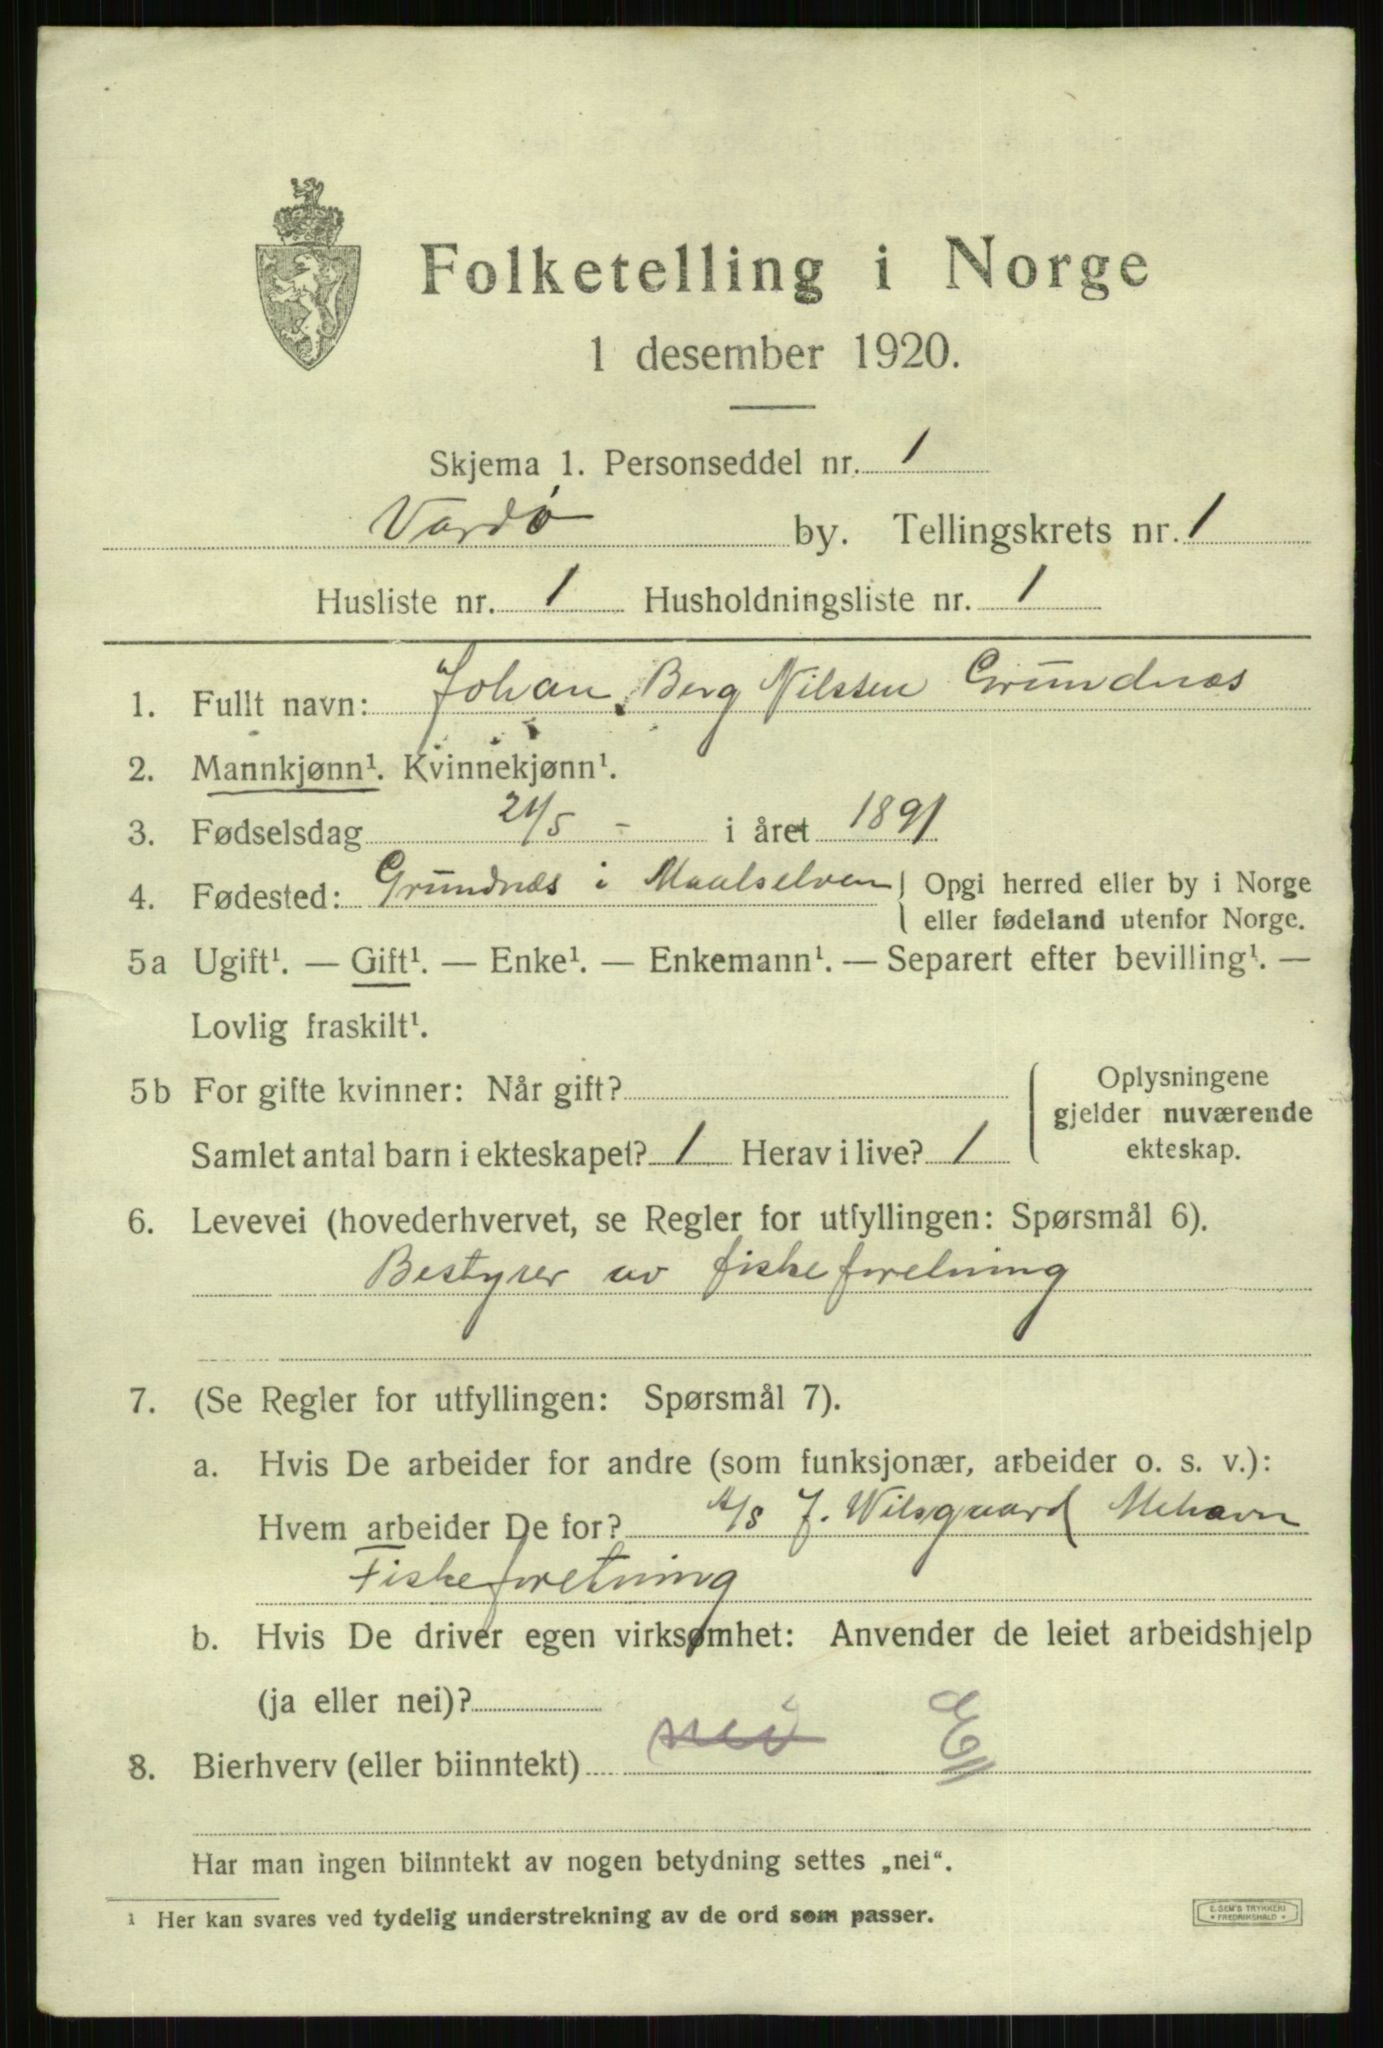 Folketelling i Norge
1 desember 1920.
Skjema 1. Personseddel nr. 1
Vardø by. Tellingskrets nr. 1
Husliste nr. 1 Husholdningsliste nr. 1
1. Fullt navn: Johan Berg Nilssen Grundnæs
2. Mannkjønn¹. Kvinnekjønn¹.
3. Fødselsdag 21/5 - i året 1891
4. Fødested: Grundnæs i Maalselven Opgi herred eller by i Norge
eller fødeland utenfor Norge.
5a Ugift¹. — Gift¹. — Enke¹. — Enkemann¹. — Separert efter bevilling¹. —
Lovlig fraskilt¹.
5b For gifte kvinner: Når gift? Oplysningene
gjelder nuværende
Samlet antal barn i ekteskapet? 1 Herav i live? 1 ekteskap.
6. Levevei (hovederhvervet, se Regler for utfyllingen: Spørsmål 6).
Bestyrer av fiskeforetning
7. (Se Regler for utfyllingen: Spørsmål 7).
a. Hvis De arbeider for andre (som funksjonær, arbeider o. s. v.):
Hvem arbeider De for? A/S J. Wilsgaard Mehavn
Fiskeforetning
b. Hvis De driver egen virksomhet: Anvender de leiet arbeidshjelp
(ja eller nei)?
8. Bierhverv (eller biinntekt) nei
Har man ingen biinntekt av nogen betydning settes „nei“.
1 Her kan svares ved tydelig understrekning av de ord som passer.
E. SEM'S TRYKKERI
• FREDRIKSHALD •